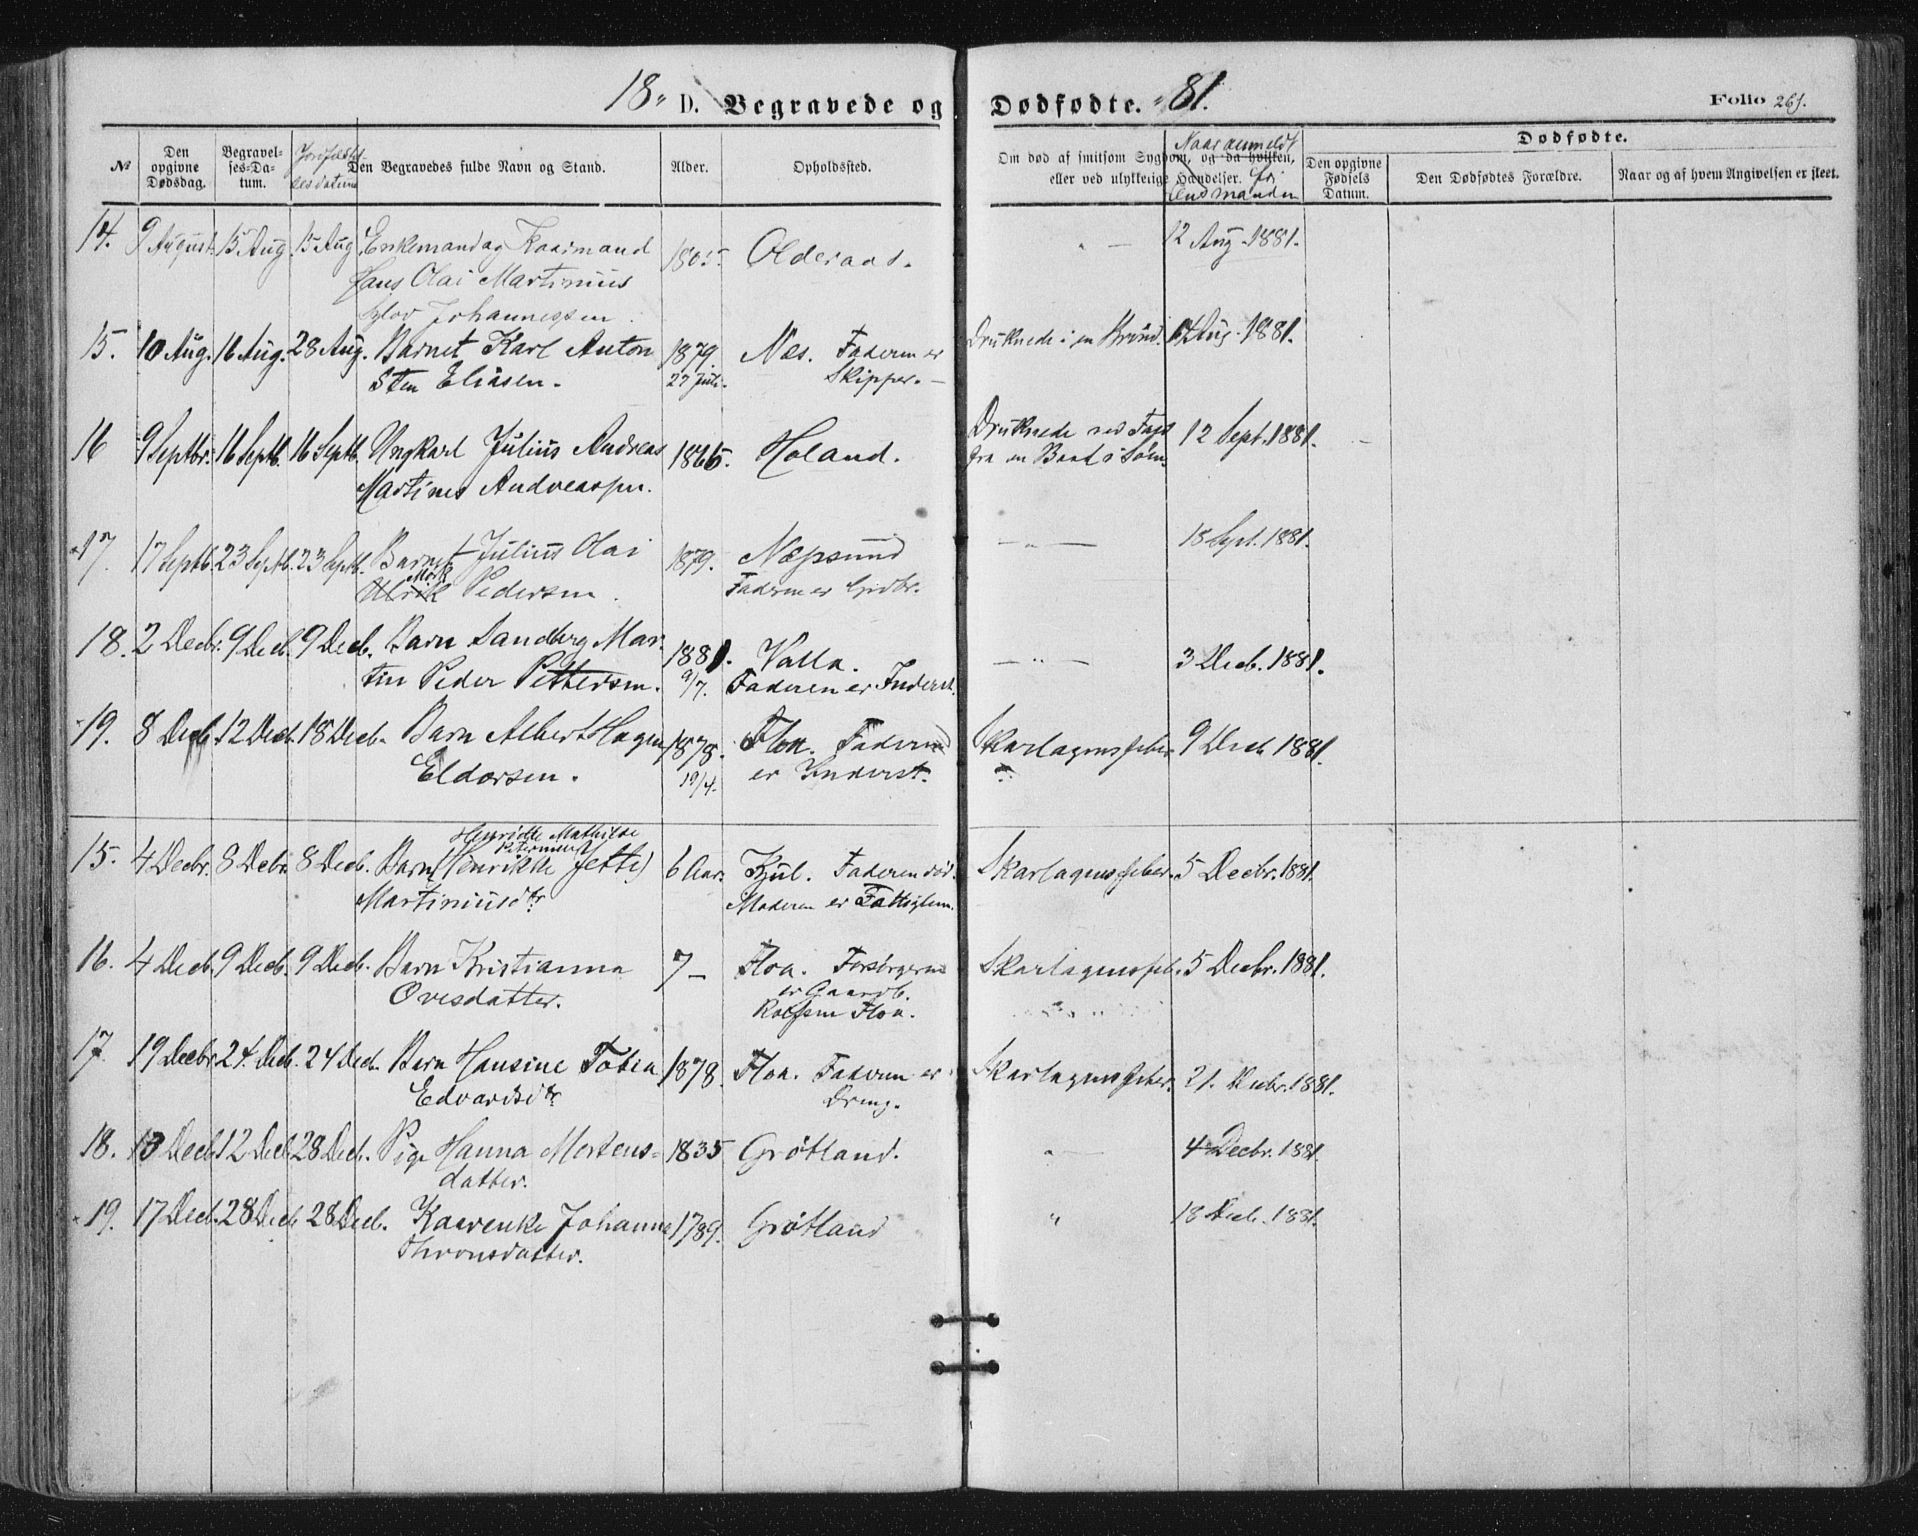 18 D. Begravede og Dødfødte. 81. Folio 261.
№
Den opgivne Dødsdag.
Begravelses-Datum.
Jordfæstelsesdatum
Den Begravedes fulde Navn og Stand.
Alder.
Opholdssted.
Om død af smitsom Sygdom, og da hvilken, eller ved ulykkelige Hændelser.
Naar anmeldt for Lensmanden
Dødfødte.
Den opgivne Fødsels Datum.
Den Dødfødtes Forældre.
Naar og af hvem Angivelsen er skeet.
14. 9 August. 15 Aug. 15 Aug. Enkemand og Kaarmand 1805. Olderaas. " — 12 Aug. 1881.
Hans Olai Martinius
Johannessen.
15. 10 Aug. 16 Aug. 28 Aug. Barnet Karl Anton 1879 Næs. Faderen er Druknede i en Brønd. Aug. 1881.
Sten Eliasen. 27 Juli. Skipper. —
16 9 Septbr. 16 Septb. 16 Septb. Ungkarl Julius Andreas 1865. Holand. Druknede ved Fald 12 Sept. 1881.
Martines Andreassen. fra en Baad i Søen.
17. 17 Septb. 23 Septb. 23 Septb. Barnet Julius Olai 1879. Næpsund — " — 18 Sept. 1881.
Mork
Ulrik Pedersen. Faderen er Grdbr.
18. 2 Decbr. 9 Decb. 9 Decb. Barn Sandberg Mar- 1881. Valla. — " — 3 Decb. 1881.
tin Peder Pettersen. 9/7. Faderen er Inderst.
19. 8 Decb. 12 Decb. 18 Decb. Barn Albert Hagen 1878. Floa. Faderen Skarlagensfeber 9 Decb 1881.
Eldorsen. 19/4. er Inderst. "
Henriette Mathilde
Petermine
15. 4 Decbr. 8 Debr. 8 Decb. Barn (Henrikke Jette) 6 Aar. Kjul. Faderen død. Skarlagensfeber. 5 Decbr. 1881.
Martiniusdtr Moderen er Fattiglem.
16. 4 Decb. 9 Decb. 9 Decb. Barn Kristianna 7 — Floa. Forsørgeren Skarlagensfeb. 5 Decbr. 1881.
Ovesdatter. er Gaardb.
Rolfsen Floa.
17. 19 Decbr. 24. Decb. 24 Decb. Barn Hansine Tobea 1878. Floa. Faderen er Skarlagensfeber. 21. Decbr. 1881.
Edvardsdtr. Dreng.
18. 13 Decb. 12 Decb. 28 Decb. Pige Hanna Mortens- 1835 Grøtland. " — 4 Decbr. 1881
datter.
19. 17 Decb. 28 Decb. 28 Decb. Kaarenke Johanna 1789. Grøtland " 18 Decb. 1881.
Thronsdatter.